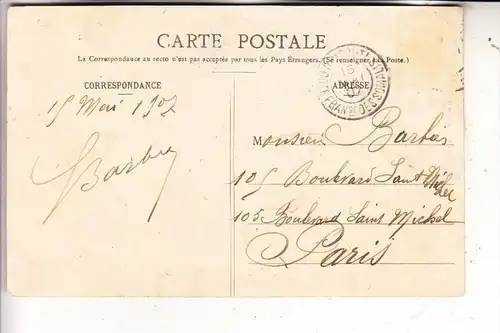 CARTE POSTALE
La Correspondance au recto n'est pas acceptée par tous les Pays Étrangers. (Se renseigner à la Poste.)
CORRESPONDANCE
ADRESSE
15 Mai 1907
Barbier
Monsieur Barbier
105 Boulevard Saint Michel
105 Boulevard Saint Michel
Paris